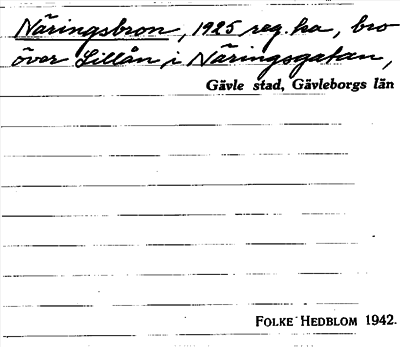 Näringsbron, 1925 reg. ka, bro
över Lillån i Näringsgatan,
Gävle stad, Gävleborgs län
FOLKE HEDBLOM 1942.